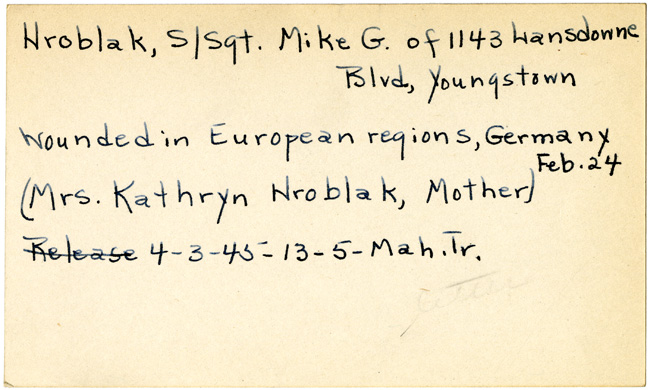 Hroblak, S/Sgt. Mike G. of 1143 Lansdowne
Blvd, Youngstown
Wounded in European regions, Germany
Feb. 24
(Mrs. Kathryn Hroblak, Mother)
Release 4-3-45-13-5-Mah.Tr.
letter